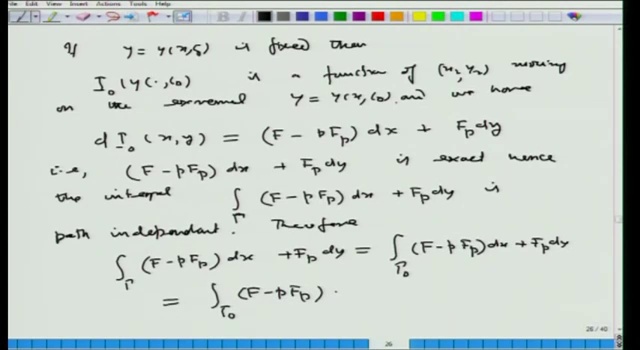 View Insert Actions Tools Help
If y = y(x, c₀) is fixed then
I₀(y(·, c₀) is a function of (x₂, y₂) moving
on the extremal y = y(x, c₀) and we have
d I₀(x, y) = (F - pFₚ) dx + Fₚ dy
i.e., (F - pFₚ) dx + Fₚ dy is exact hence
the integral ∫_Γ (F - pFₚ) dx + Fₚ dy is
path independant. Therefore
∫_Γ (F - pFₚ) dx + Fₚ dy = ∫_Γ₀ (F - pFₚ) dx + Fₚ dy
= ∫_Γ₀ (F - pFₚ)
26 / 40
26